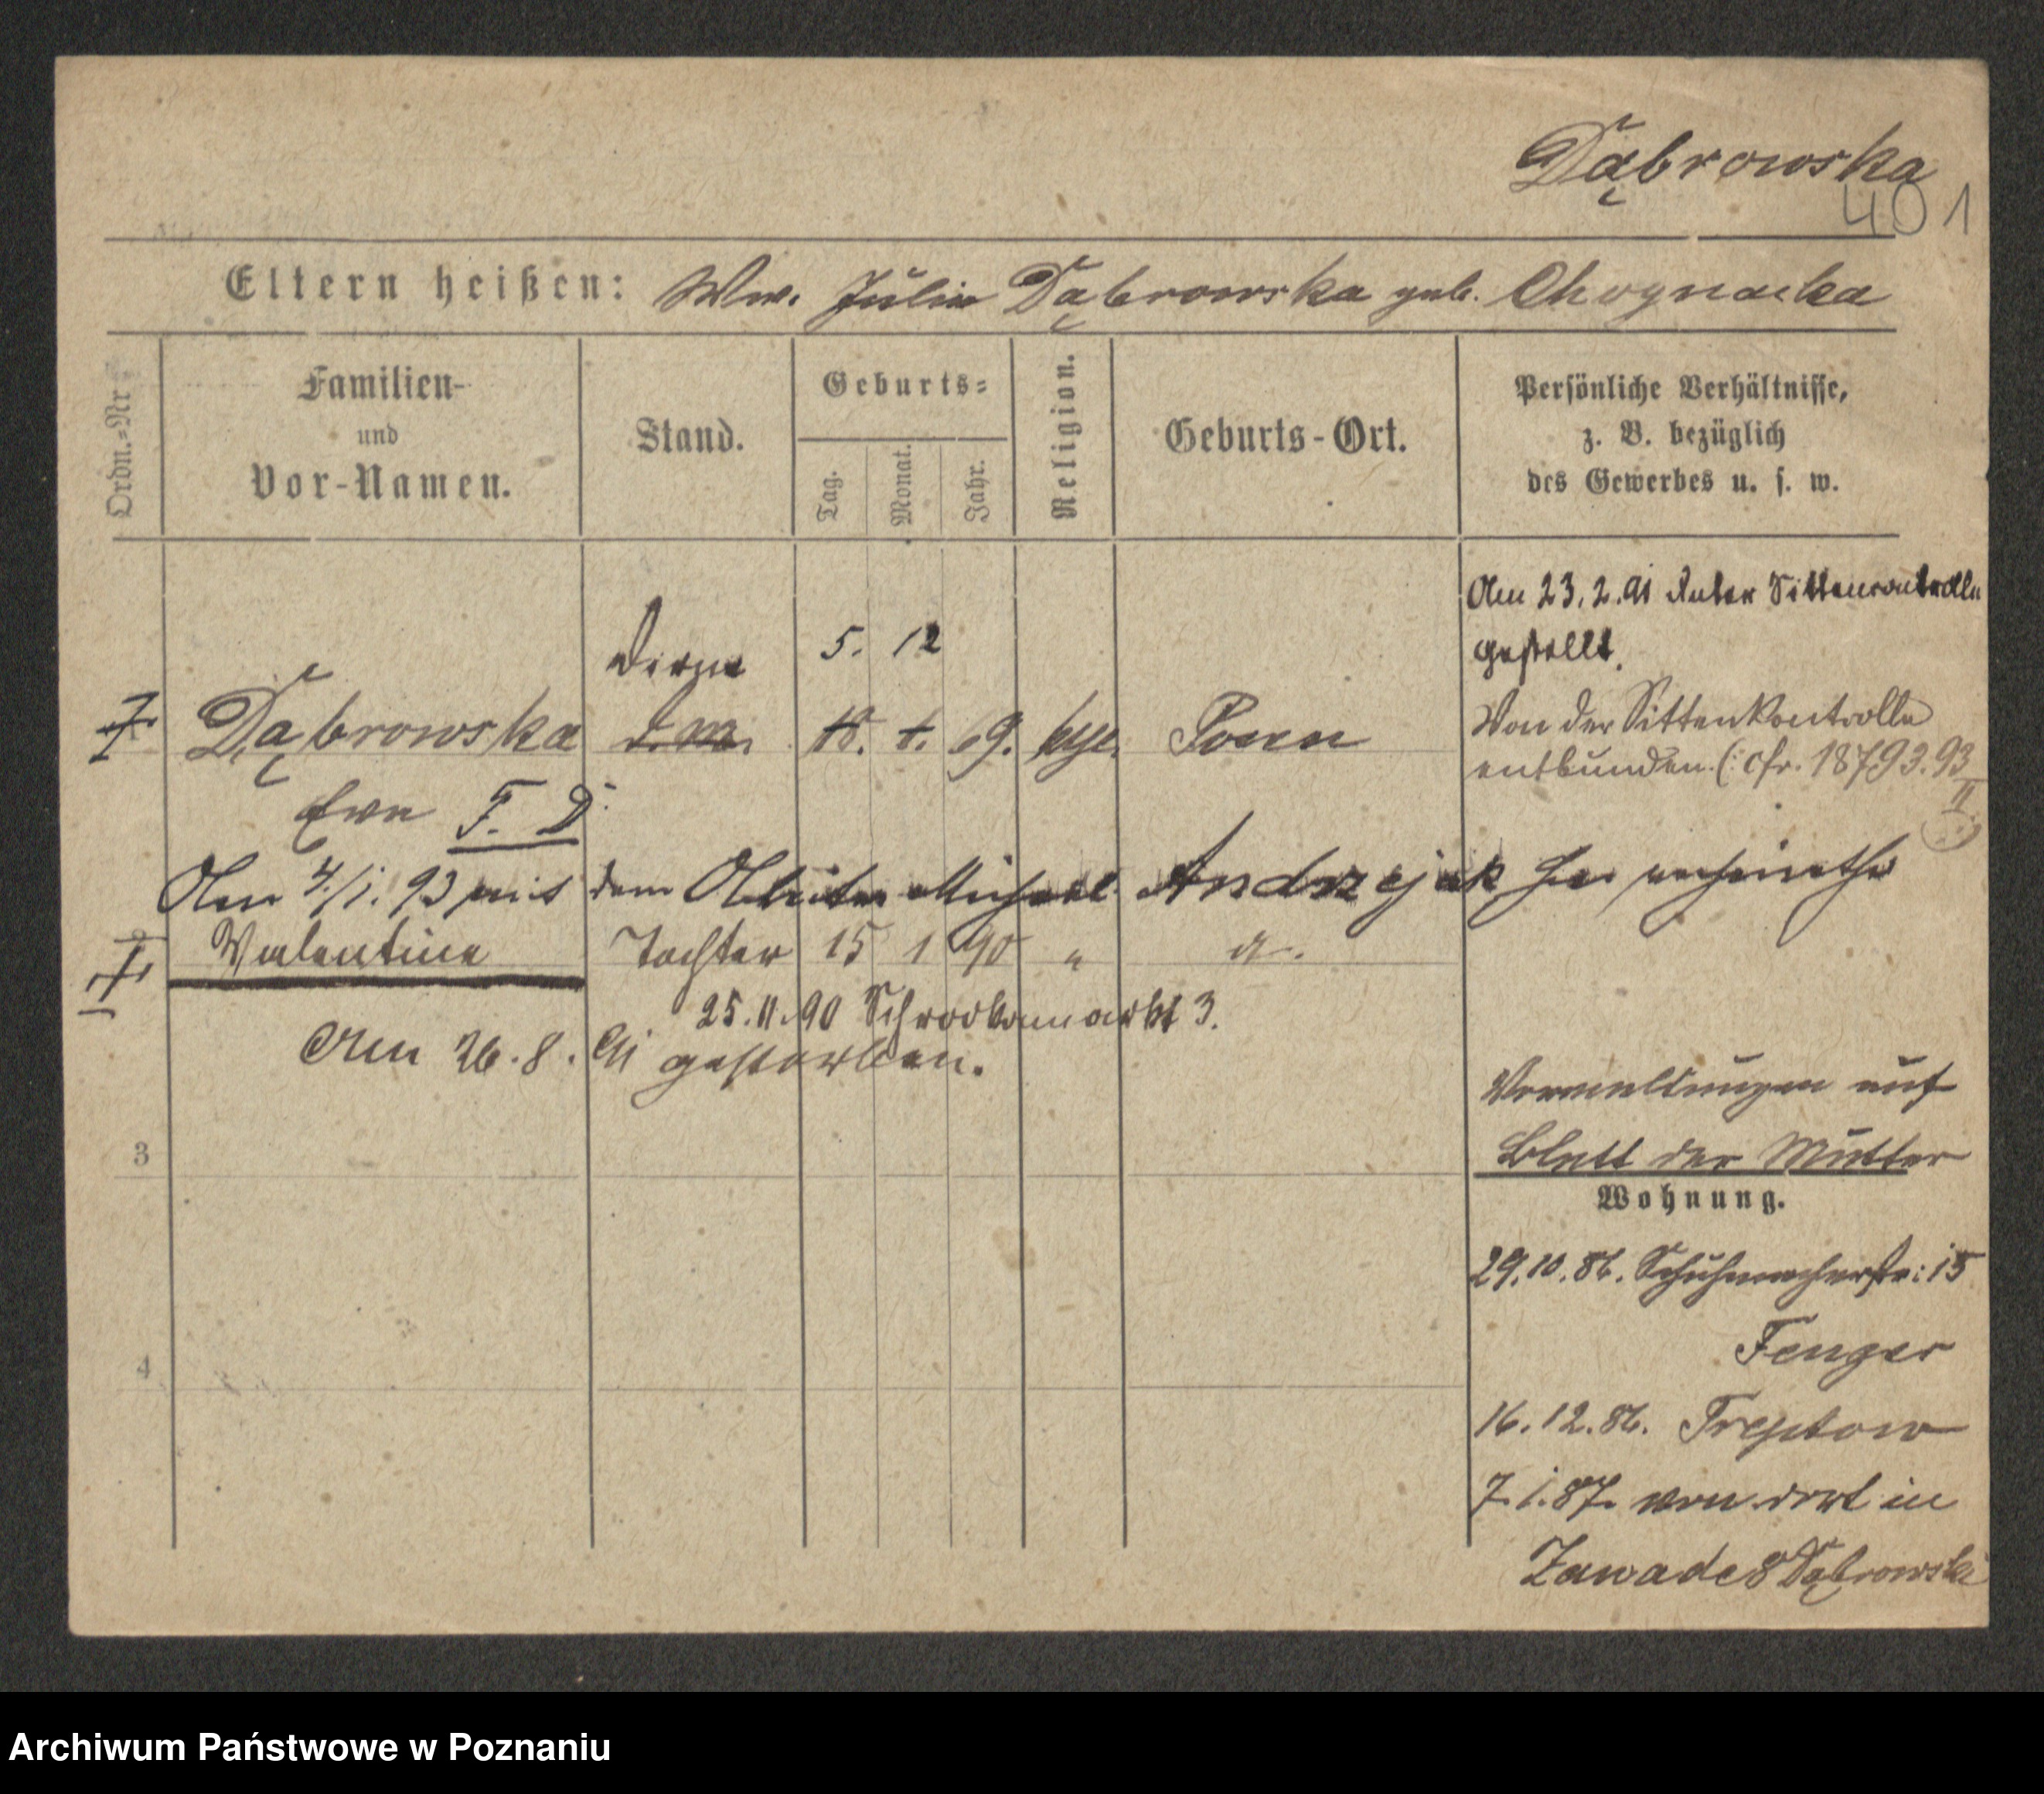 Dąbrowska
401
Eltern heißen: Ww. Julia Dąbrowska geb. Choynacka
Ordn.=Nr
Familien-
und
Vor-Namen.
Stand.
Geburts=
Tag.
Monat.
Jahr.
Religion.
Geburts-Ort.
Persönliche Verhältnisse,
z. B. bezüglich
des Gewerbes u. s. w.
Am 23.2.91 unter Sittencontrolle
gestellt.
Dirne 5. 12
Dąbrowska d.m. 18. 1. 69. kath. Posen
Von der Sittenkontrolle
entbunden (: cfr. 18793.93
II :)
Eva F. D.
Am 4/1. 93 mit dem Arbeiter Michael Andrzejak sich verheirathet
Valentine Tochter 15 1 90 " a.
25.11.90 Schrodkamarkt 3.
Am 26.8.91 gestorben.
Vermeldungen auf
Blatt der Mutter
3
Wohnung.
29.10.86. Schuhmacherstr: 15
Fenger
4
16.12.86. Treptow
7.1.87. von dort in
Zawade 8 Dąbrowski
Archiwum Państwowe w Poznaniu